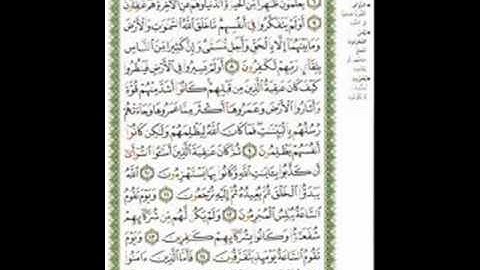 يَعْلَمُونَ ظَٰهِرًا مِّنَ ٱلْحَيَوٰةِ ٱلدُّنْيَا وَهُمْ عَنِ ٱلْأَخِرَةِ هُمْ غَٰفِلُونَ
٧ أَوَلَمْ يَتَفَكَّرُوا۟ فِىٓ أَنفُسِهِم مَّا خَلَقَ ٱللَّهُ ٱلسَّمَٰوَٰتِ وَٱلْأَرْضَ
وَمَا بَيْنَهُمَآ إِلَّا بِٱلْحَقِّ وَأَجَلٍ مُّسَمًّى وَإِنَّ كَثِيرًا مِّنَ ٱلنَّاسِ
بِلِقَآئِ رَبِّهِمْ لَكَٰفِرُونَ ٨ أَوَلَمْ يَسِيرُوا۟ فِى ٱلْأَرْضِ فَيَنظُرُوا۟
كَيْفَ كَانَ عَٰقِبَةُ ٱلَّذِينَ مِن قَبْلِهِمْ كَانُوٓا۟ أَشَدَّ مِنْهُمْ قُوَّةً
وَأَثَارُوا۟ ٱلْأَرْضَ وَعَمَرُوهَآ أَكْثَرَ مِمَّا عَمَرُوهَا وَجَآءَتْهُمْ
رُسُلُهُم بِٱلْبَيِّنَٰتِ فَمَا كَانَ ٱللَّهُ لِيَظْلِمَهُمْ وَلَٰكِن كَانُوٓا۟
أَنفُسَهُمْ يَظْلِمُونَ ٩ ثُمَّ كَانَ عَٰقِبَةَ ٱلَّذِينَ أَسَٰٓـُٔوا۟ ٱلسُّوٓأَىٰٓ
أَن كَذَّبُوا۟ بِـَٔايَٰتِ ٱللَّهِ وَكَانُوا۟ بِهَا يَسْتَهْزِءُونَ ١٠ ٱللَّهُ
يَبْدَؤُا۟ ٱلْخَلْقَ ثُمَّ يُعِيدُهُۥ ثُمَّ إِلَيْهِ تُرْجَعُونَ ١١ وَيَوْمَ تَقُومُ
ٱلسَّاعَةُ يُبْلِسُ ٱلْمُجْرِمُونَ ١٢ وَلَمْ يَكُن لَّهُم مِّن شُرَكَآئِهِمْ
شُفَعَٰٓؤُا۟ وَكَانُوا۟ بِشُرَكَآئِهِمْ كَٰفِرِينَ ١٣ وَيَوْمَ
تَقُومُ ٱلسَّاعَةُ يَوْمَئِذٍ يَتَفَرَّقُونَ ١٤ فَأَمَّا ٱلَّذِينَ ءَامَنُوا۟